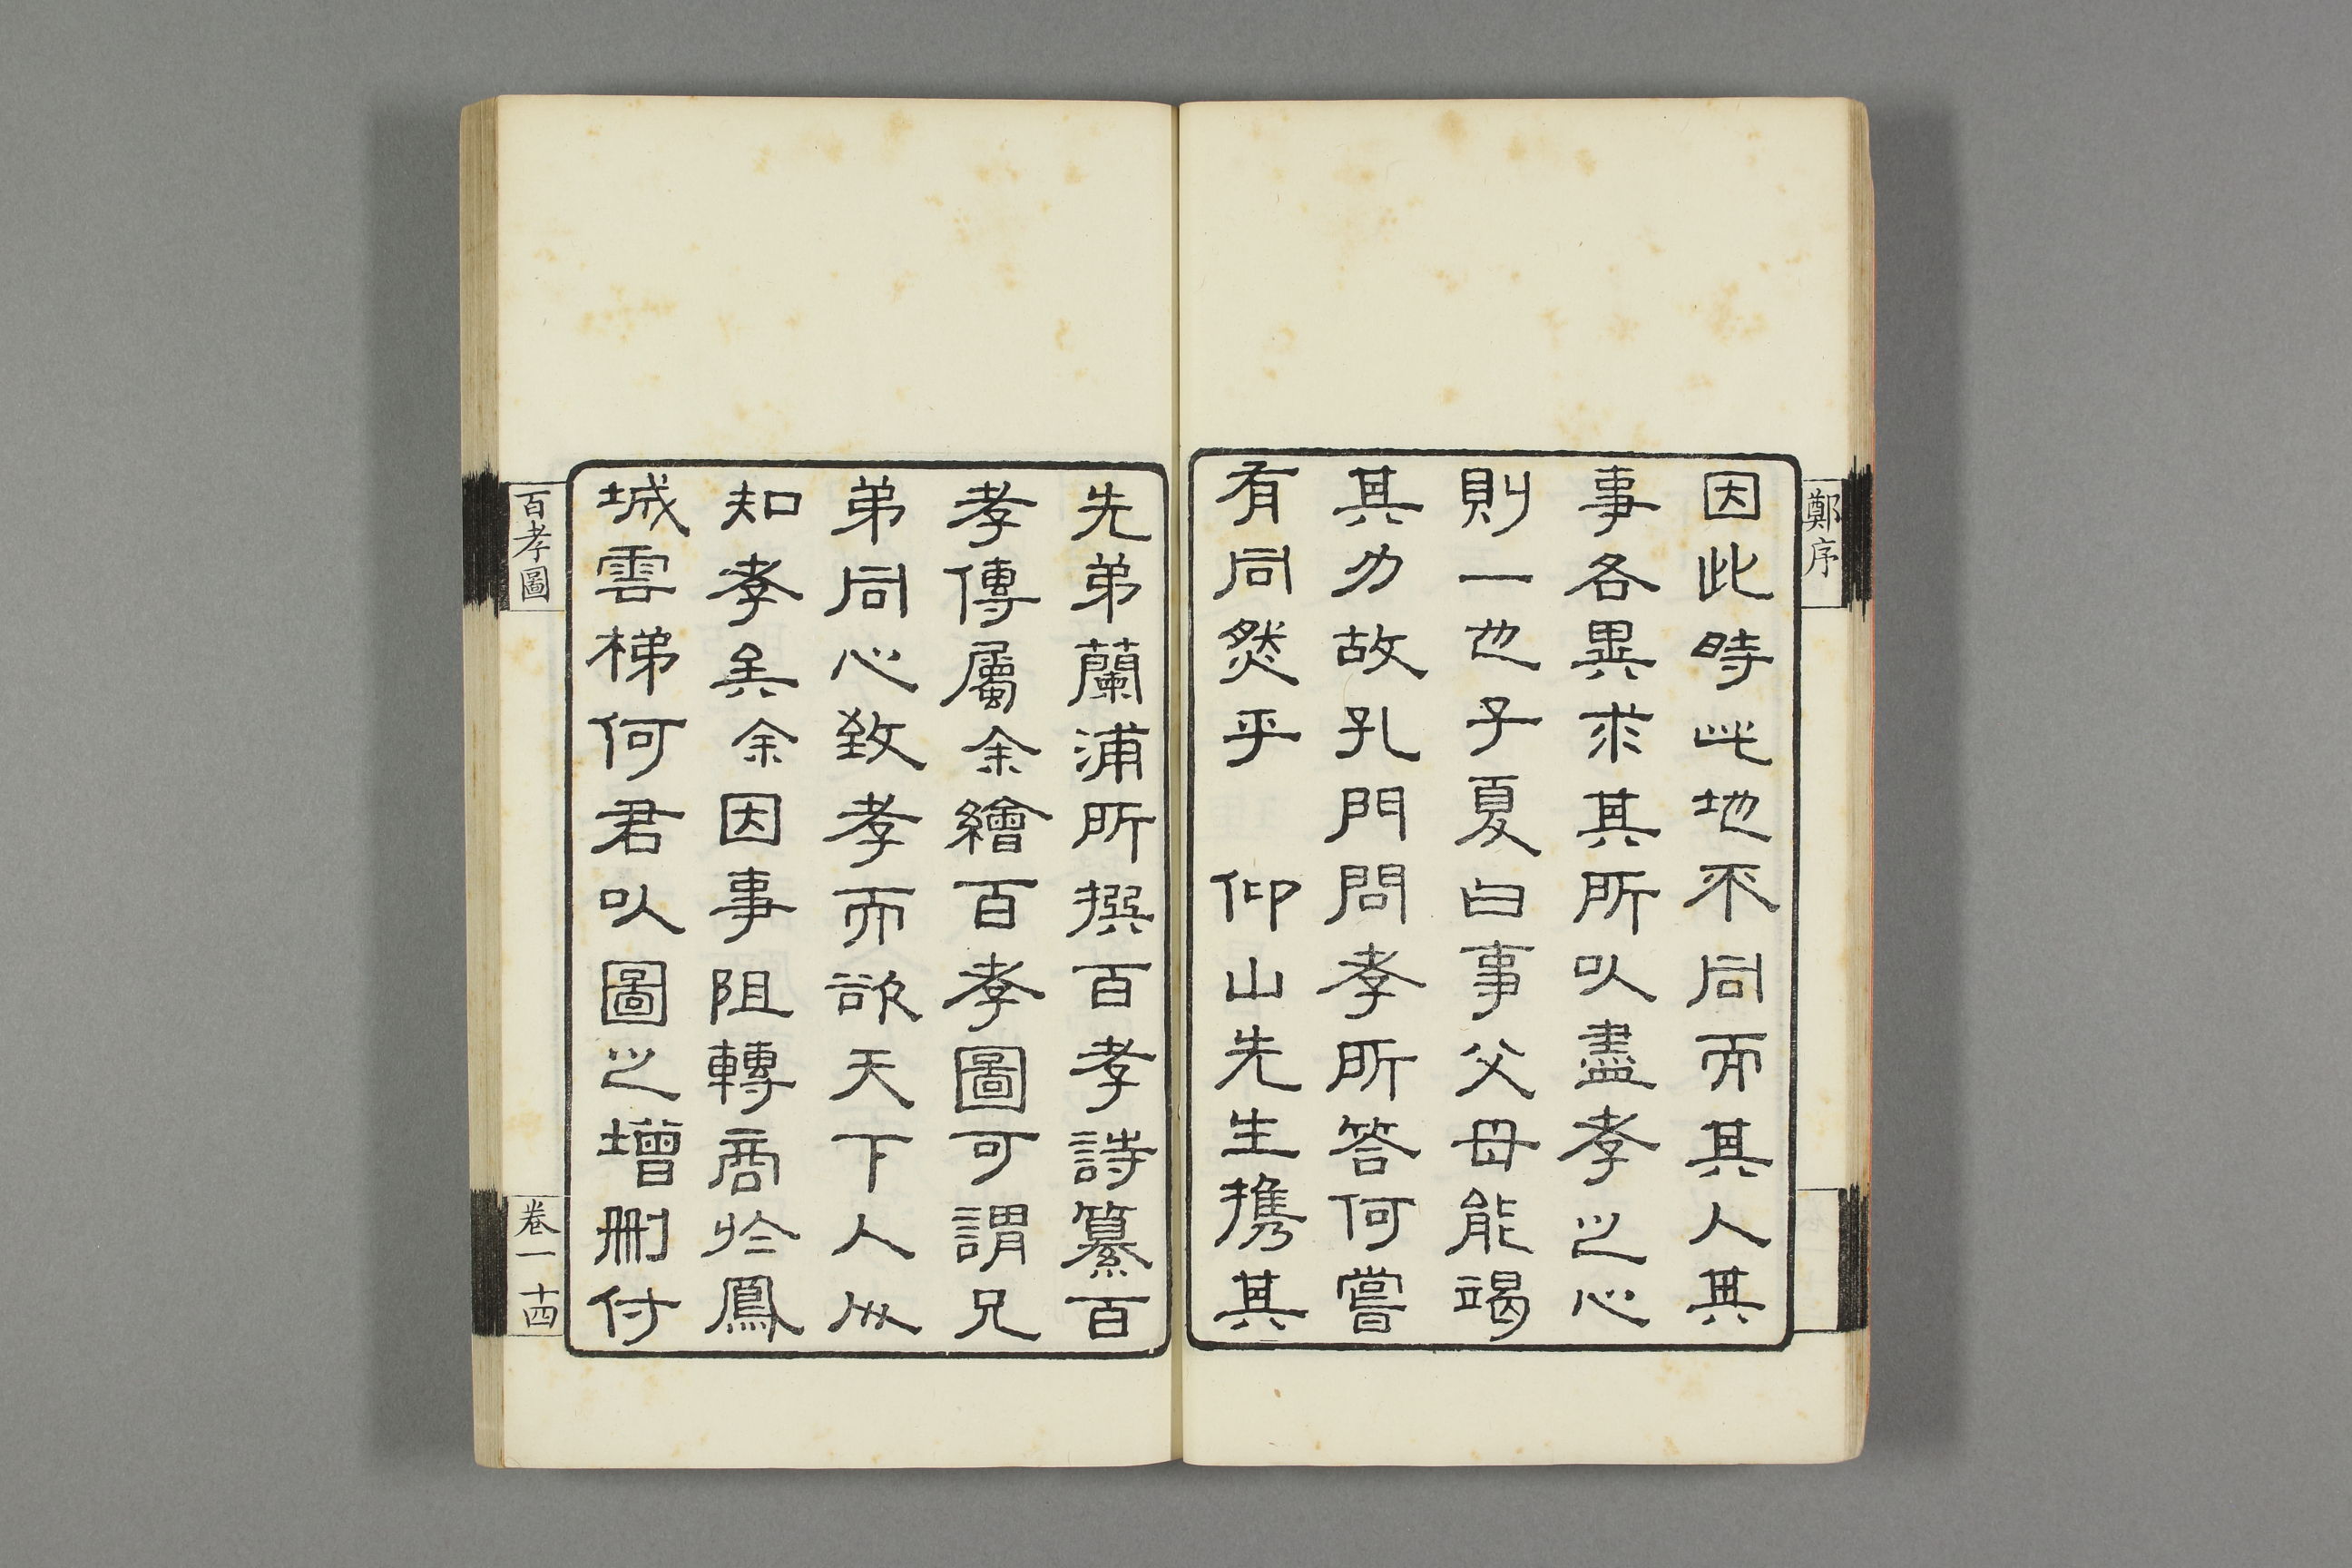 鄭序
因此時此地不同而其人其
事各異求其所以盡孝之心
則一也子夏曰事父母能竭
其力故孔門問孝所答何嘗
有同然乎　仰山先生攜其
先弟蘭浦所撰百孝詩纂百
孝傳屬余繪百孝圖可謂兄
弟同心致孝而欲天下人以
知孝矣余因事阻轉商於鳳
城雲梯何君以圖之增刪付
百孝圖
卷一　十四